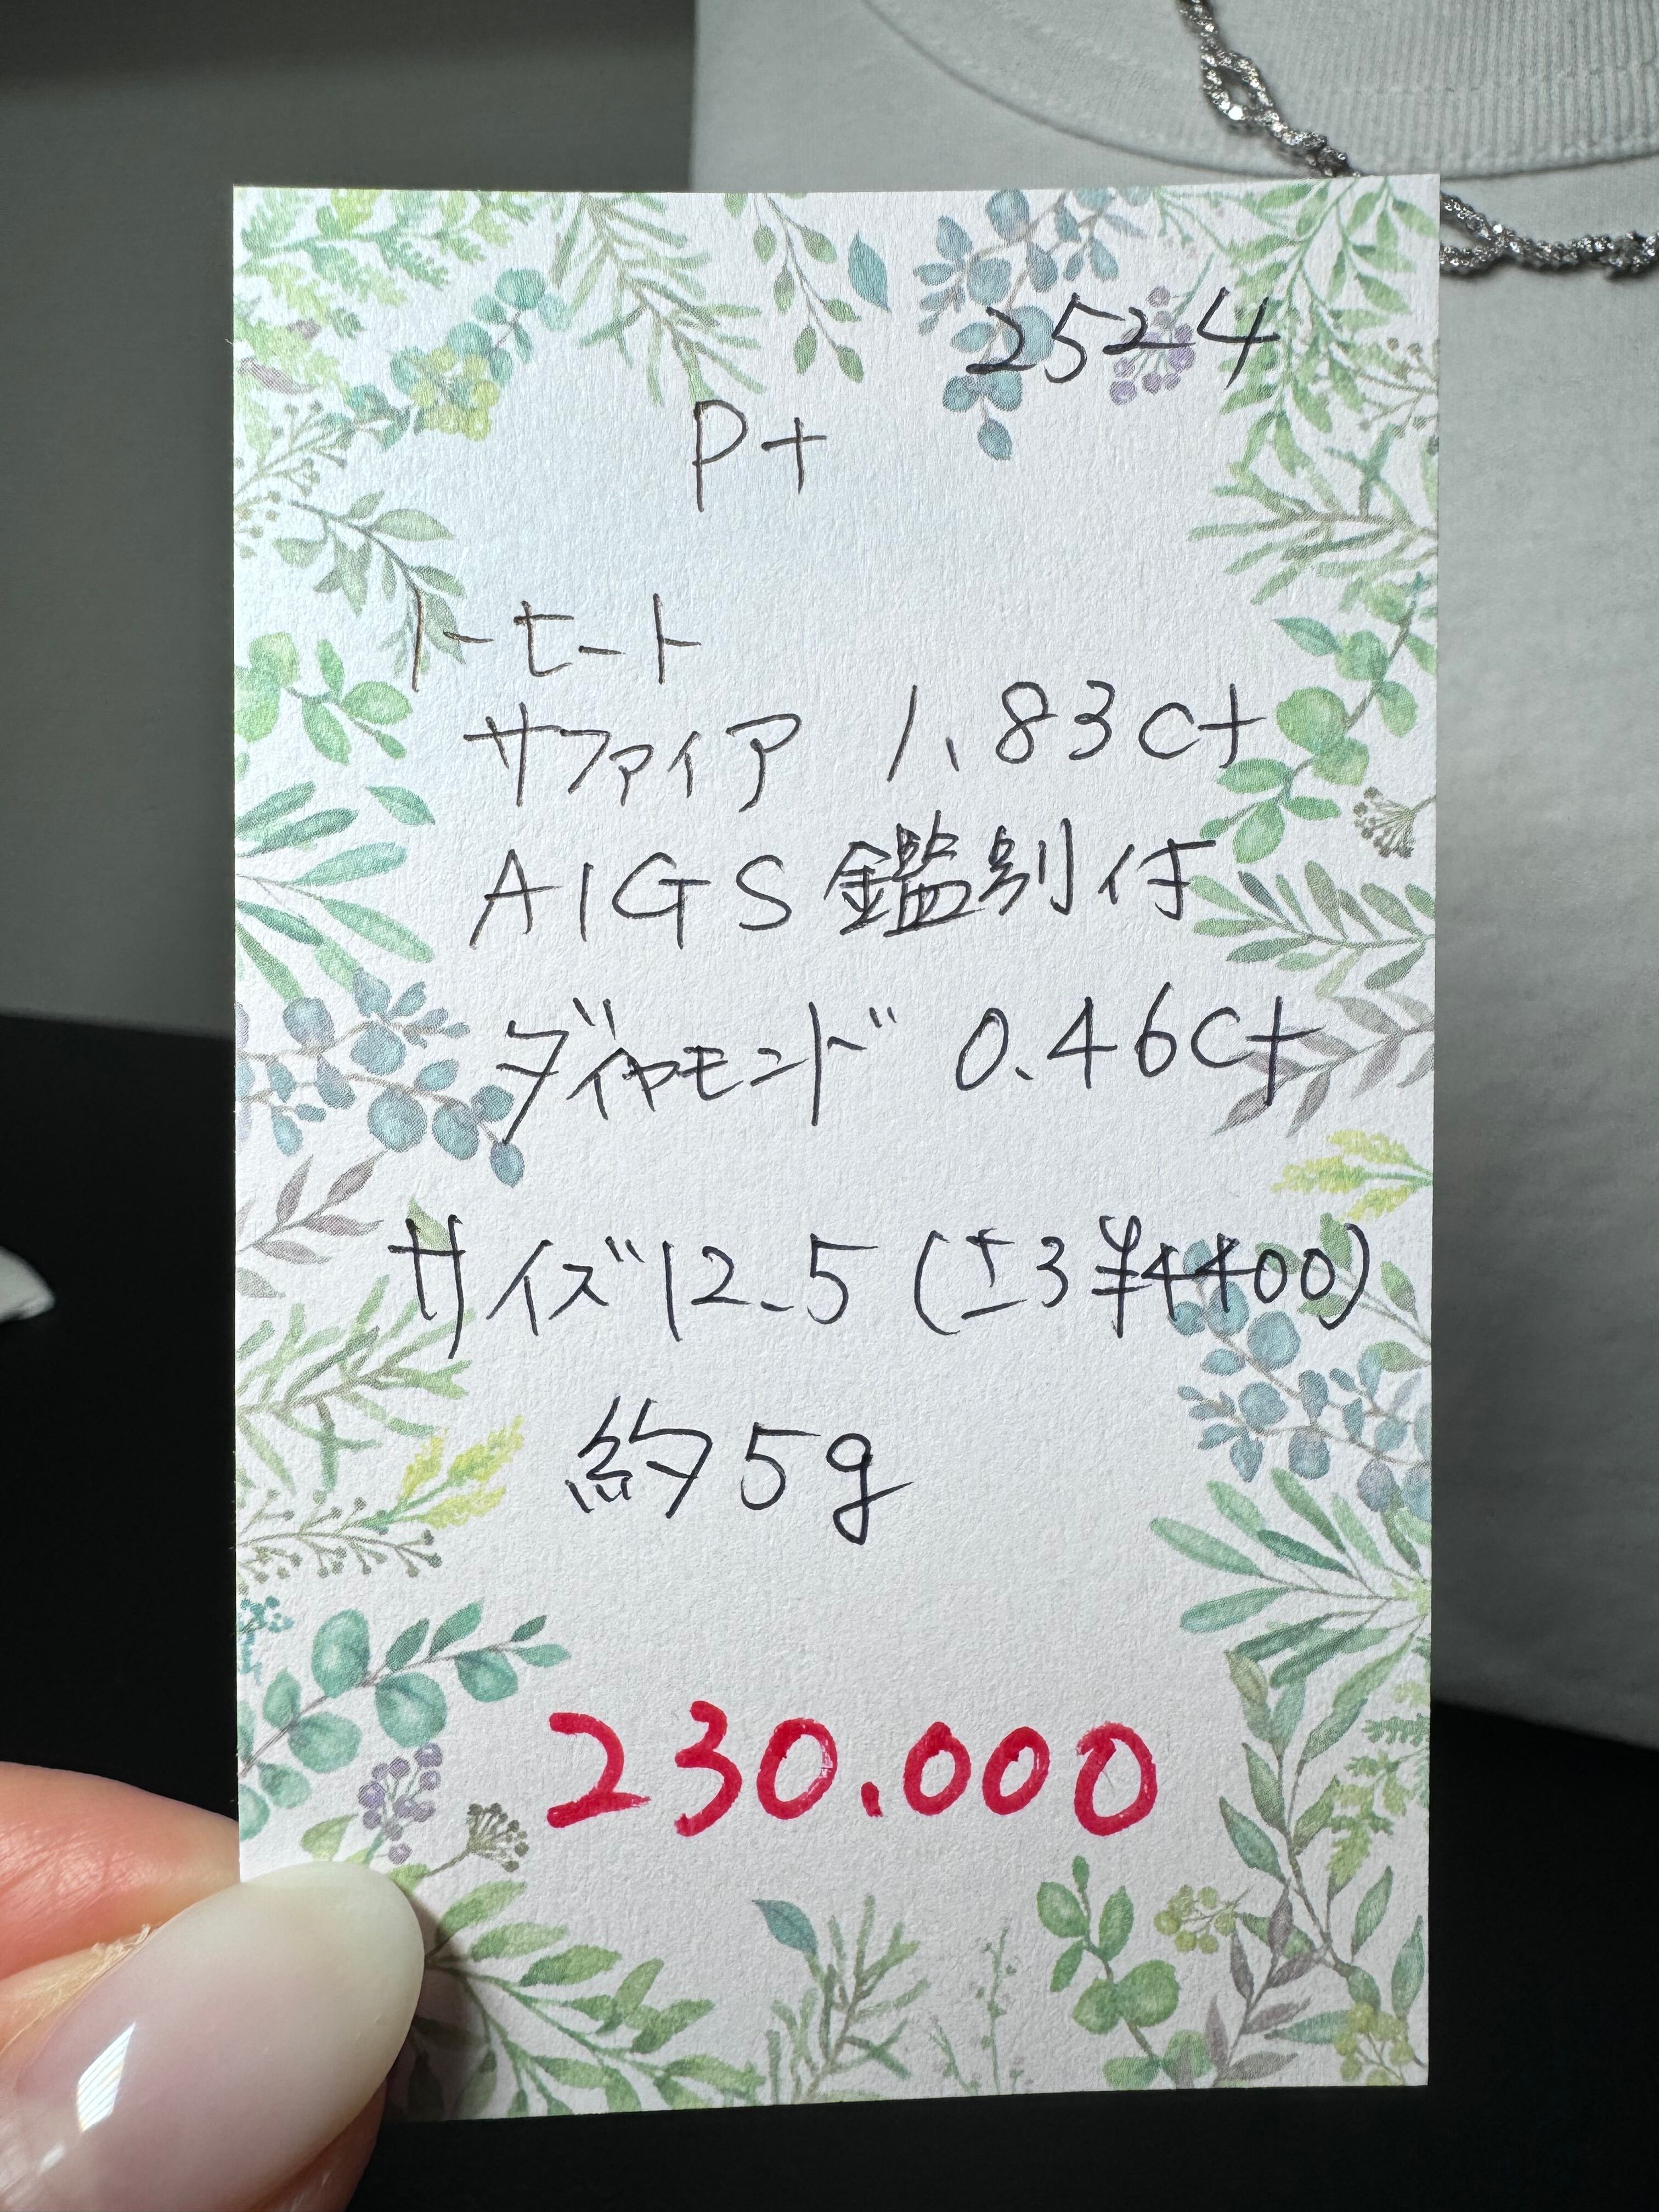 2524
Pt
ノーヒート
サファイア 1.83ct
AIGS鑑別付
ダイヤモンド 0.46ct
サイズ12.5(±3¥4400)
約5g
230.000